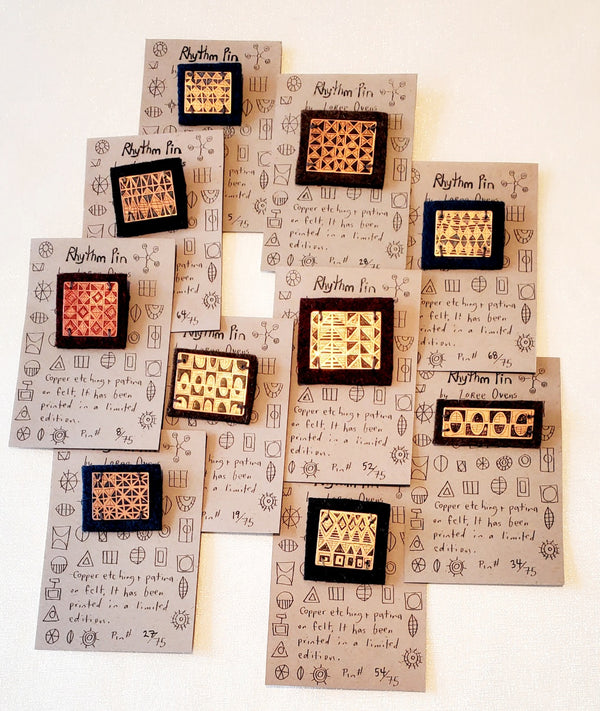 Rhythm Pin
5/75
Rhythm Pin
by Loree Ovens
Copper etching + patina
on felt, It has been
printed in a limited
edition.
28/75
Rhythm Pin
patina
been
limited
64/75
Rhythm Pin
been
limited
Pin# 68/75
Rhythm Pin
Copper etching + patina
on felt, It has been
printed in a limited
edition.
Pin# 8/75
Pin
Loree Ovens
patina
been
limited
19/75
Copper etching + patina
on felt, It has been
printed in a limited
edition.
Pin# 52/75
Rhythm Pin
by Loree Ovens
Copper etching + patina
on felt, It has been
printed in a limited
edition.
Pin# 34/75
by Loree Ovens
Copper etching + patina
on felt, It has been
printed in a limited
edition.
Pin# 27/75
Copper etching + patina
on felt, It has been
printed in a limited
edition.
Pin# 54/75